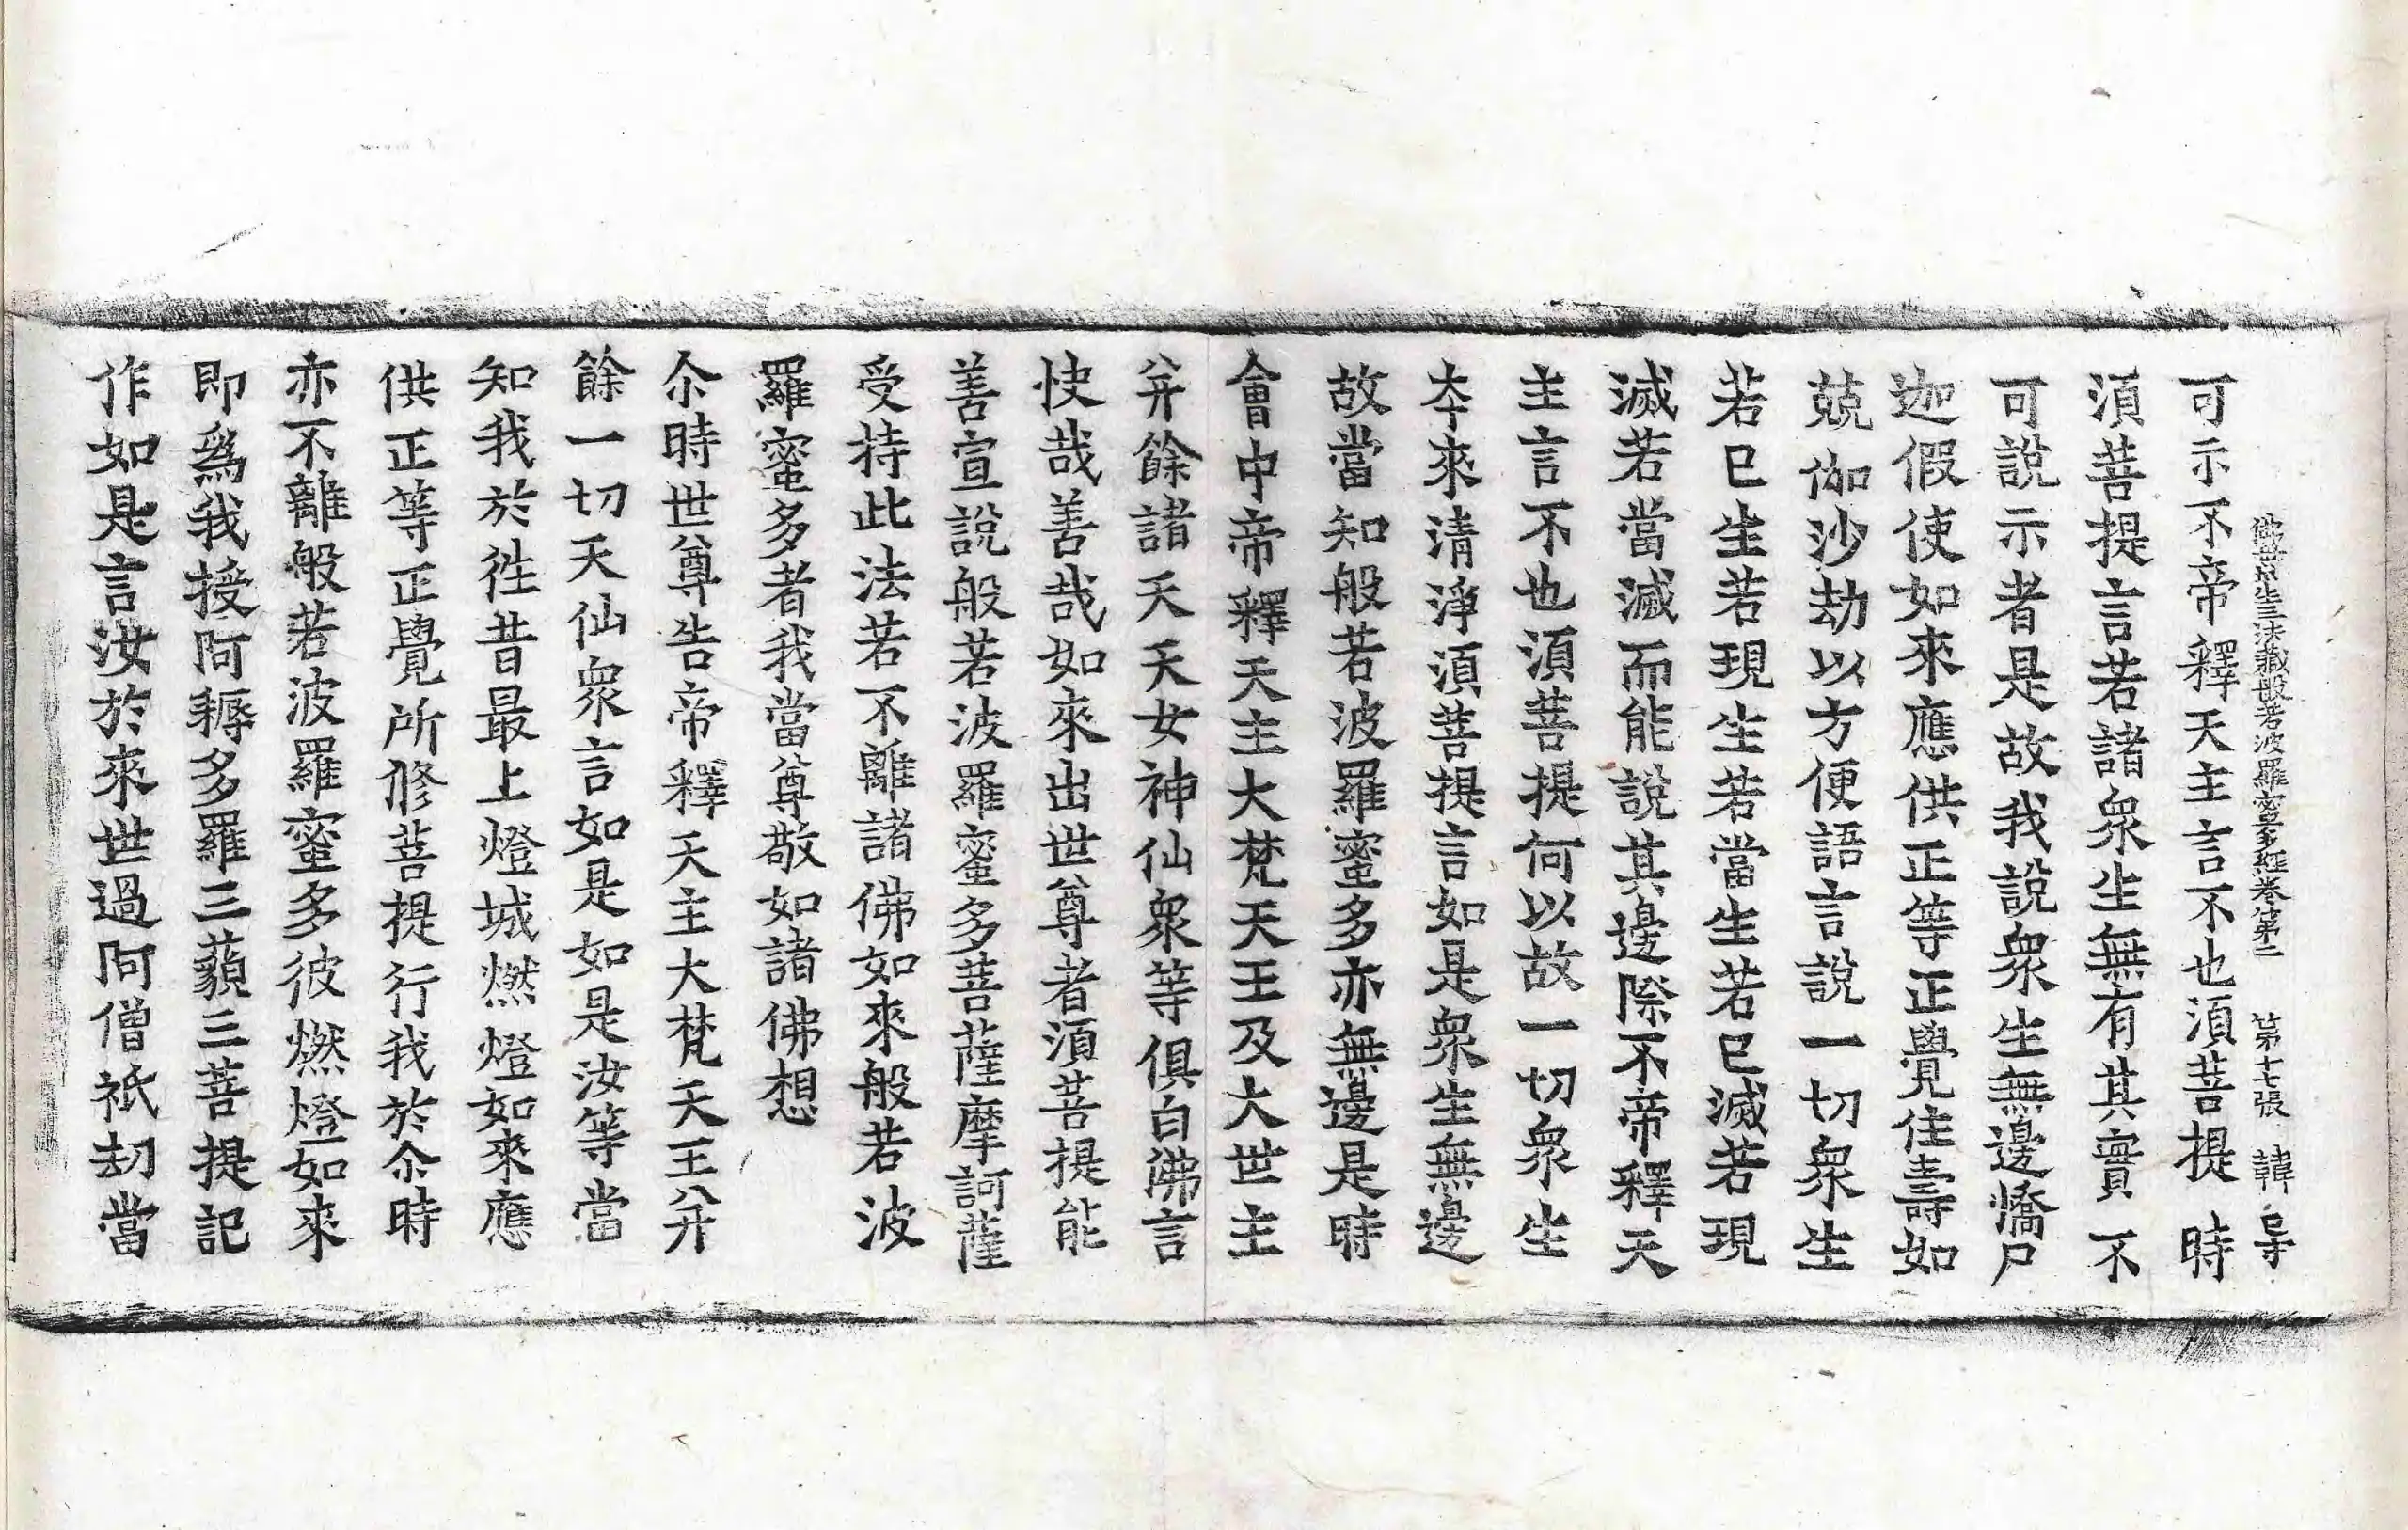 佛母出生三法藏般若波羅蜜多經卷第二 第十七張 韓
可示不帝釋天主言不也須菩提時
須菩提言若諸衆生無有其實不
可說示者是故我說衆生無邊憍尸
迦假使如來應供正等正覺住壽如
兢伽沙劫以方便語言說一切衆生
若已生若現生若當生若已滅若現
滅若當滅而能說其邊際不帝釋天
主言不也須菩提何以故一切衆生
夲來清淨須菩提言如是衆生無邊
故當知般若波羅蜜多亦無邊是時
會中帝釋天主大梵天王及大世主
并餘諸天天女神仙衆等俱白佛言
快哉善哉如來出世尊者須菩提能
善宣說般若波羅蜜多菩薩摩訶薩
受持此法若不離諸佛如來般若波
羅蜜多者我當尊敬如諸佛想
尒時世尊告帝釋天主大梵天王并
餘一切天仙衆言如是如是汝等當
知我於徃昔最上燈城燃燈如來應
供正等正覺所修菩提行我於尒時
亦不離般若波羅蜜多彼燃燈如來
即爲我授阿耨多羅三藐三菩提記
作如是言汝於來世過阿僧祇劫當